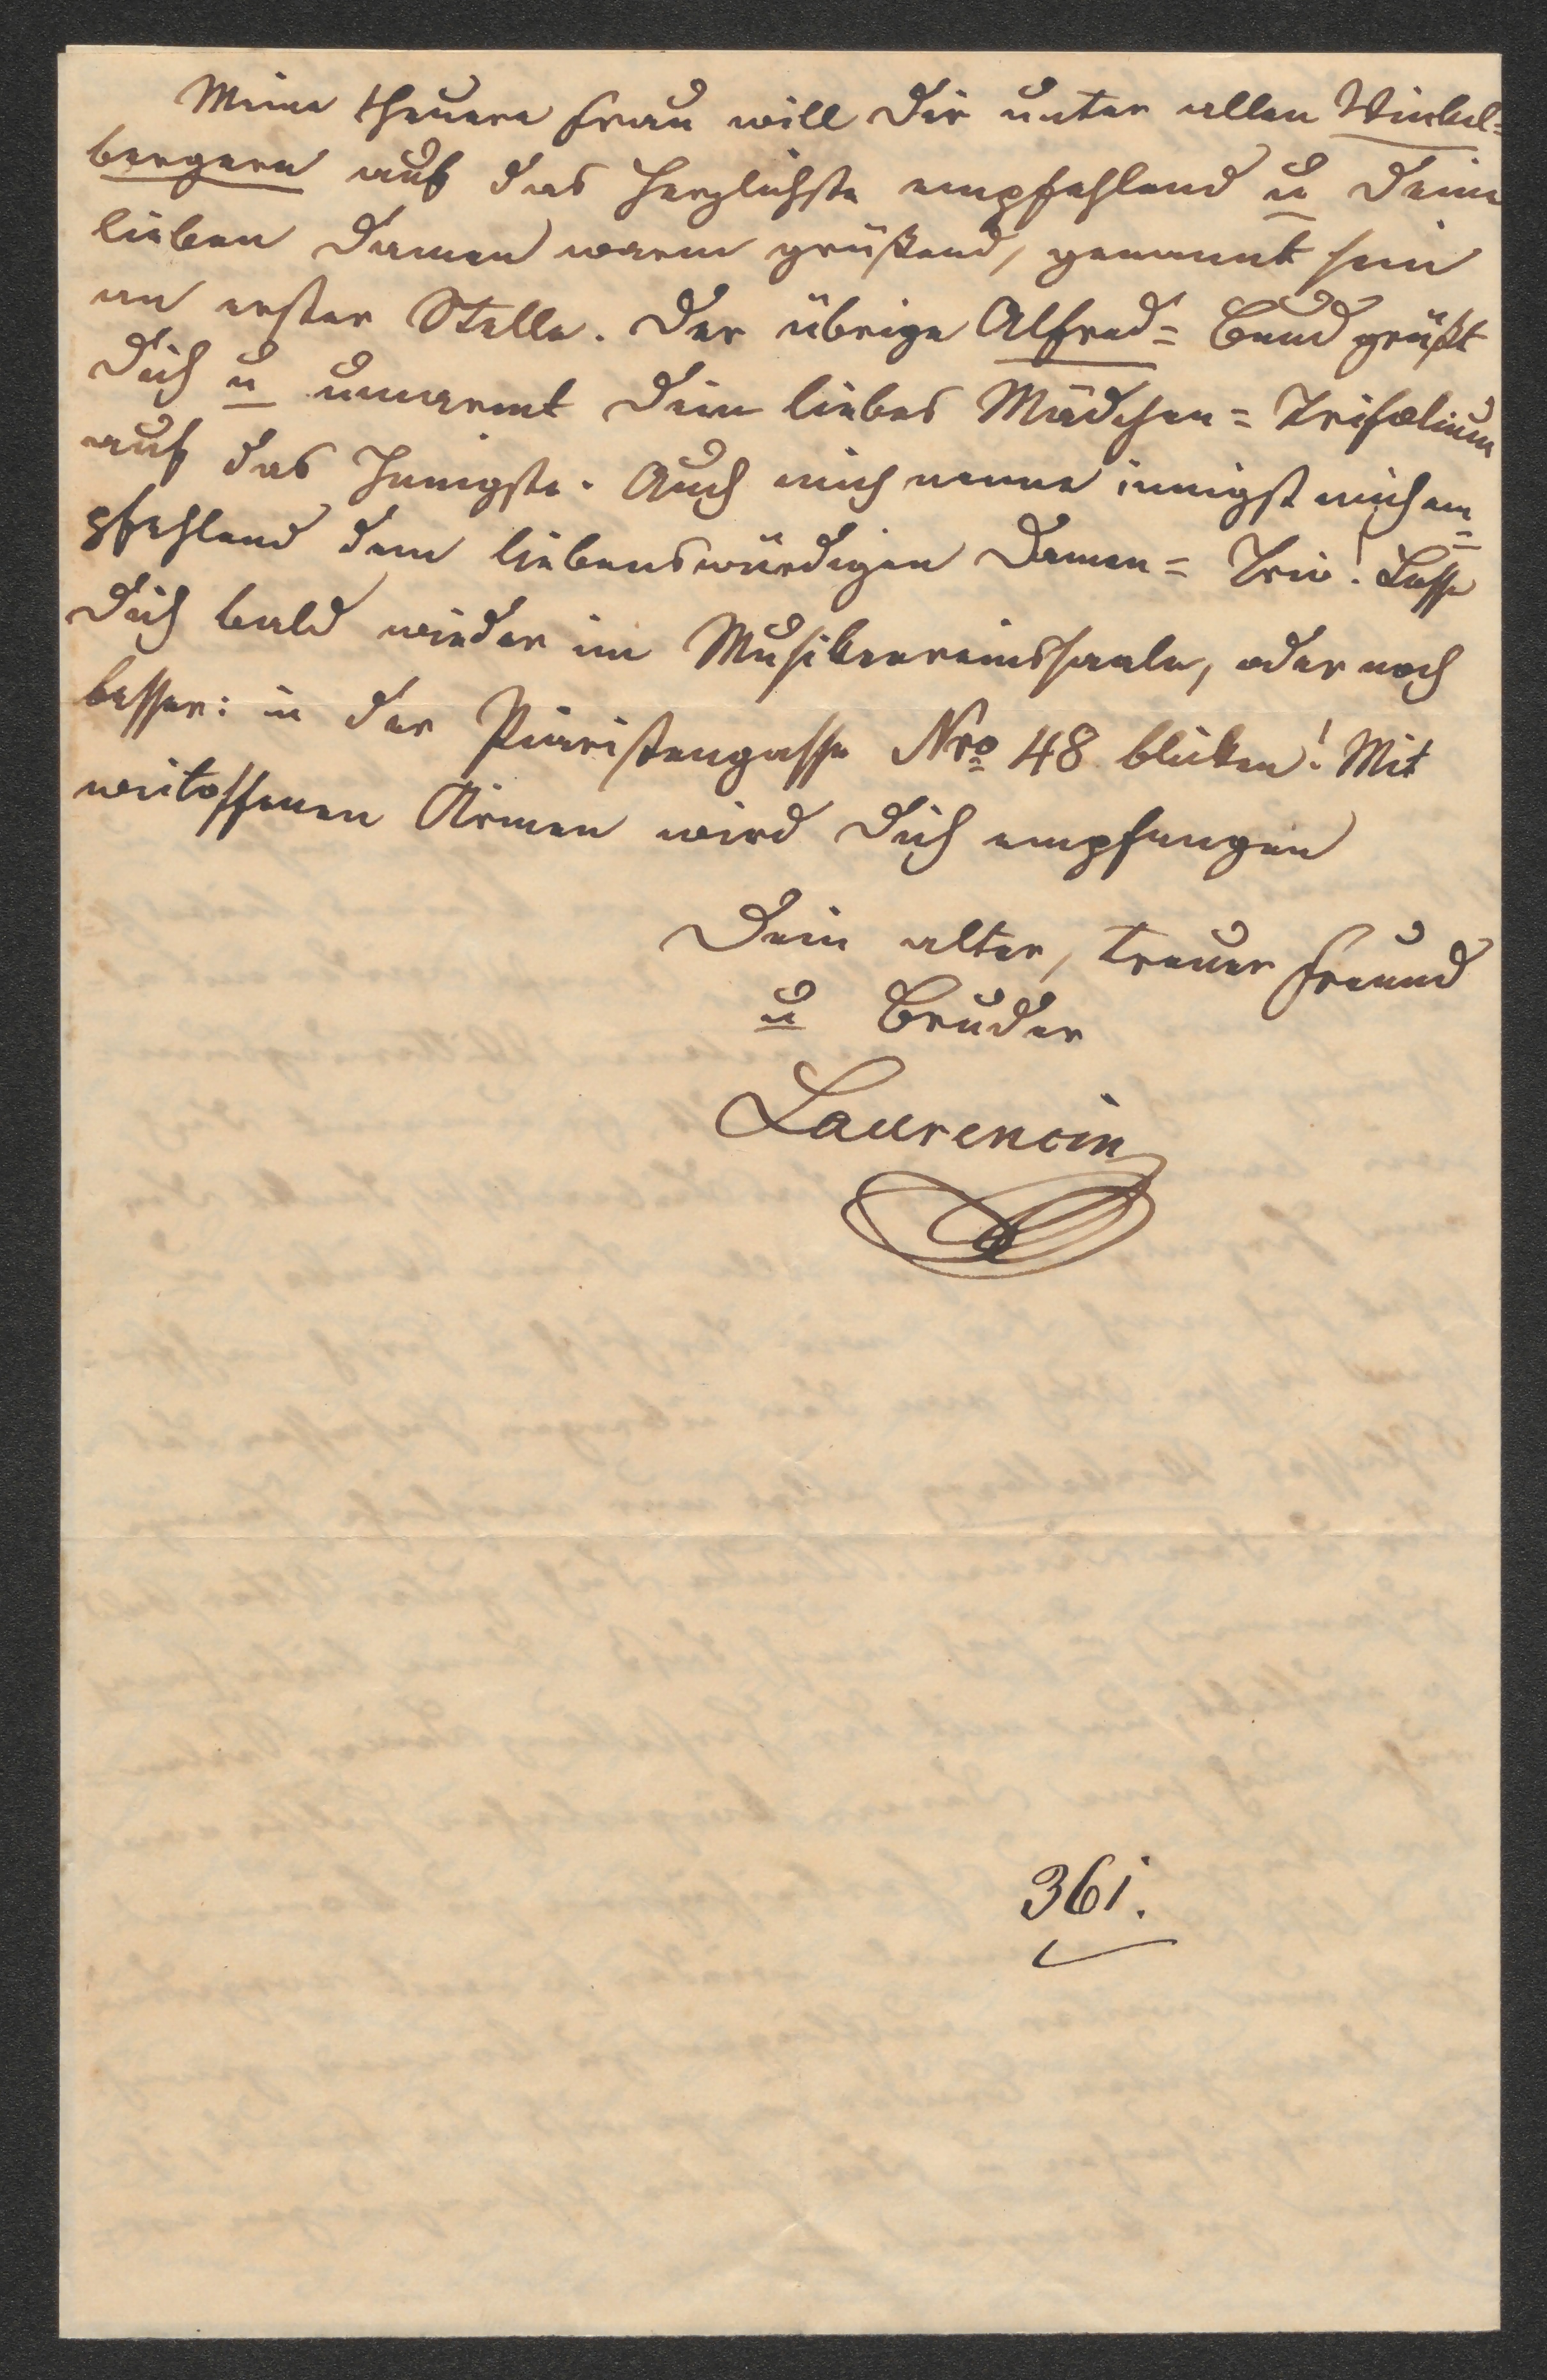 Meine theuere Frau will Dir unter allen Winkel=
bergern auf das Herzlichste empfehlend u Deine
lieben Damen warm grüßend, genannt sein
an erster Stelle. Der übrige Alfred= Bund grüßt
Dich u umarmt Dein liebes Mädchen= Trifolium
auf das Innigste. Auch mich nenne innigst mich em=
pfehlend dem liebenswürdigen Damen= Trio! Lasse
Dich bald wieder im Musikvereinssaale, oder noch
besser: in der Piaristengasse Nro 48 blicken! Mit
weitoffenen Armen wird Dich empfangen
Dein alter, treuer Freund
u Bruder
Laurencin
361.